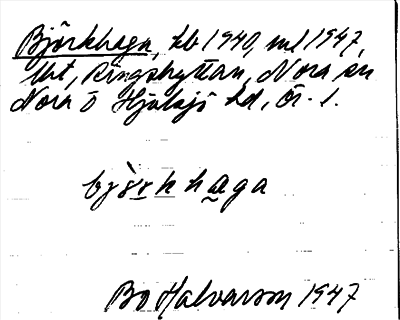 Björkhagen, hb 1940, ml 1947,
lht, Ringshyttan, Nora sn
Nora o Hjulsjö hd, Ör. l.
björkhaga
Bo Halvarson 1947